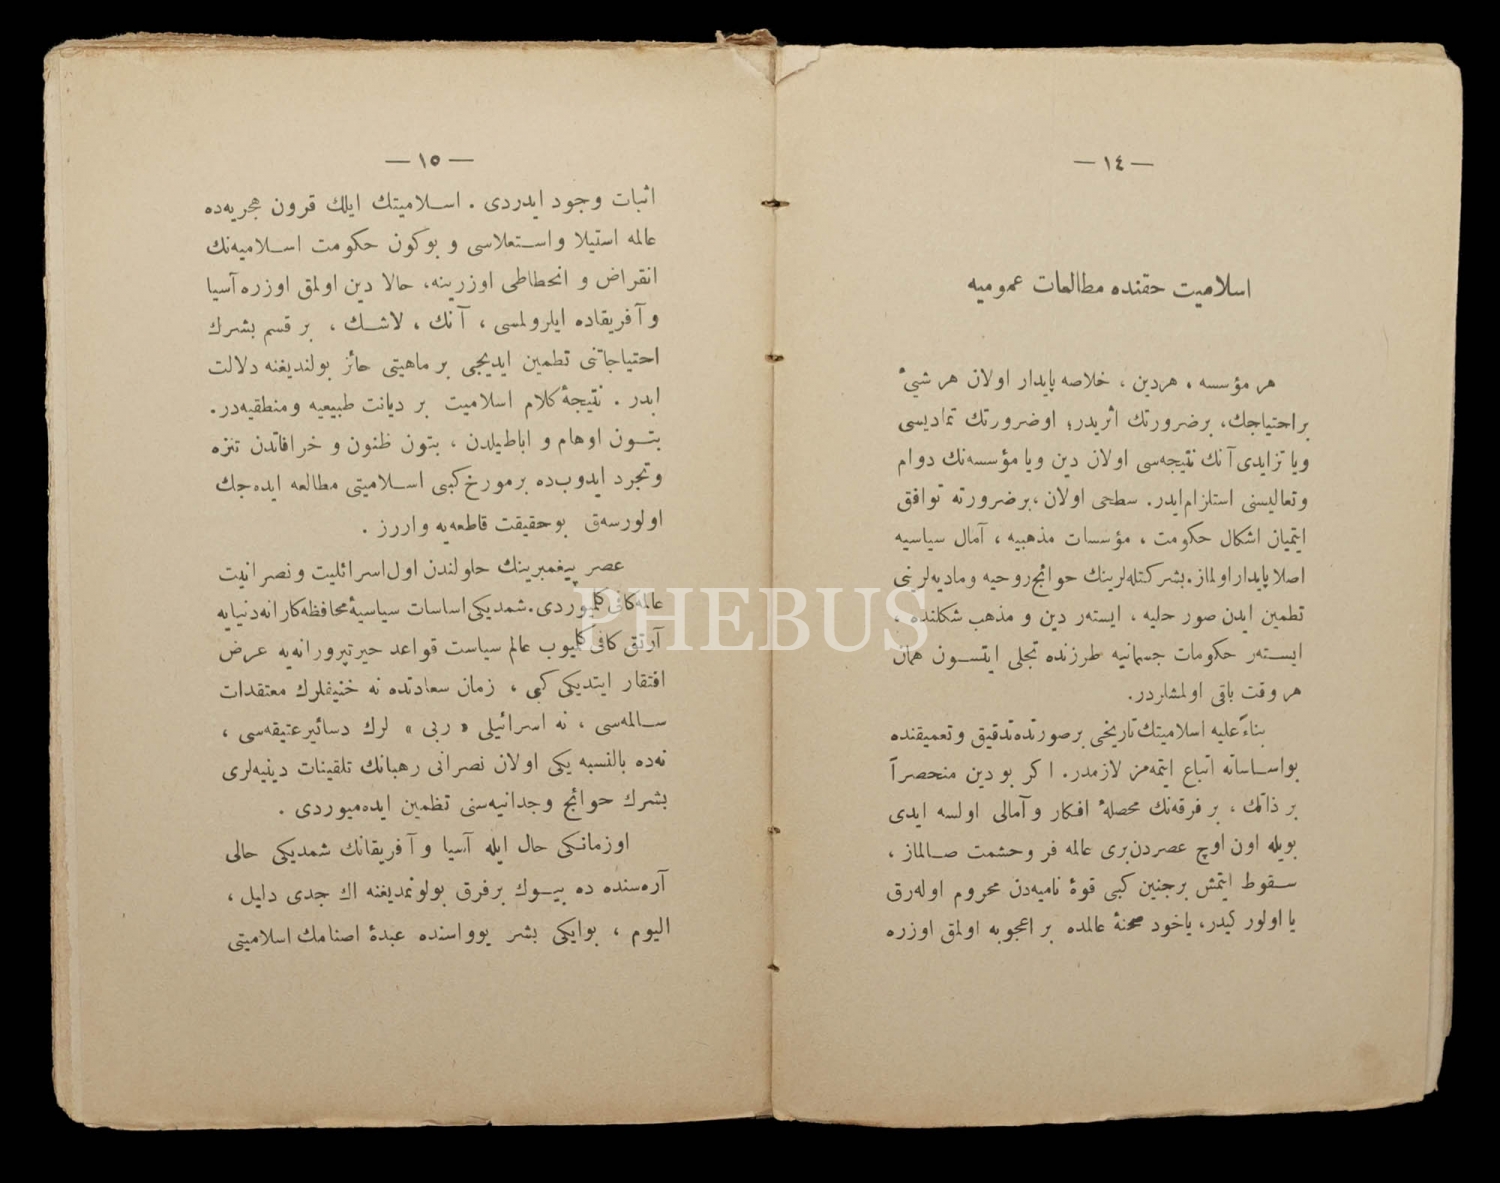 — ١٤ —
اسلاميت حقنده مطالعات عموميه
هر مؤسسه ، هردين ، خلاصه پايدار اولان هر شئ
براحتياجك، برضرورتك اثريدر؛ اوضرورتك تماديسى
ويا تزايدى آنك نتيجه‌سى اولان دين ويا مؤسسه‌نك دوام
وتعاليسنى استلزام ايدر. سطحى اولان ،برضرورته توافق
ايتميان اشكال حكومت ، مؤسسات مذهبيه ، آمال سياسيه
اصلا پايدار اولماز. بشر كتله‌لرينك حوائج روحيه وماديه‌لرينى
تطمين ايدن صور حليه ، ايسته‌ر دين و مذهب شكلنده ،
ايسته‌ر حكومات جسمانيه طرزنده تجلى ايتسون همان
هر وقت باقى اولمشلردر.
بناءً عليه اسلاميتك تاريخى برصورتده تدقيق وتعميقنده
بواساساته اتباع ايتمه‌مز لازمدر. اكر بو دين منحصراً
بر ذاتك ، بر فرقه‌نك محصلهٔ افكار و آمالى اولسه ايدى
بويله اون اوچ عصردن‌برى عالمه فر وحشمت صالماز ،
سقوط ايتمش برجنين كبى قوهٔ ناميه‌دن محروم اوله‌رق
يا اولور كيدر، ياخود صحنهٔ عالمده بر اعجوبه اولمق اوزره
— ١٥ —
اثبات وجود ايدردى . اسلاميتك ايلك قرون هجريه‌ده
عالمه استيلا واستعلاسى و بوكون حكومت اسلاميه‌نك
انقراض و انحطاطى اوزرينه، حالا دين اولمق اوزره آسيا
و آفريقاده ايلرولمسى ، آنك ، لاشك ، بر قسم بشرك
احتياجاتنى تطمين ايديجى بر ماهيتى حائز بولنديغنه دلالت
ايدر . نتيجهٔ كلام اسلاميت بر ديانت طبيعيه ومنطقيه‌در.
بتون اوهام و اباطيلدن ، بتون ظنون و خرافاتدن تنزه
وتجرد ايدوب‌ده برمورخ كبى اسلاميتى مطالعه ايده‌جك
اولورسه‌ق بوحقيقت قاطعه‌يه واررز .
عصر پيغمبرينك حلولندن اول اسرائليت ونصرانيت
عالمه كافى كلميوردى. شمديكى اساسات سياسيهٔ محافظه‌كارانه دنيايه
آرتق كافى كلميوب عالم سياست قواعد حيرتپرورانه‌يه عرض
افتقار ايتديكى كبى ، زمان سعادتده نه خنيفلرك معتقدات
سالمه‌سى ، نه اسرائيلى « ربى » لرك دسائيرعتيقه‌سى ،
نه‌ده بالنسبه يكى اولان نصرانى رهبانك تلقينات دينيه‌لرى
بشرك حوائج وجدانيه‌سنى تطمين ايده‌ميوردى .
اوزمانكى حال ايله آسيا و آفريقانك شمديكى حالى
آره‌سنده ده بيوك برفرق بولونمديغنه اك جدى دليل ،
اليوم ، بوايكى بشر يوواسنده عبدهٔ اصنامك اسلاميتى
PHEBUS